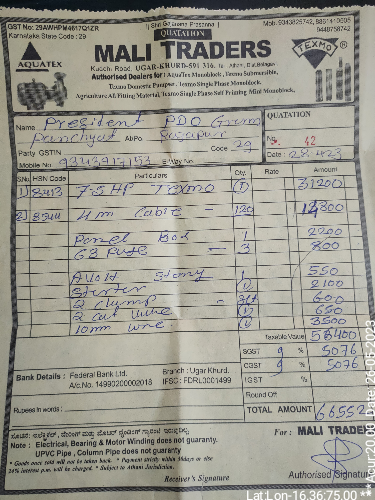 GST No: 29AWHPM4617Q1ZR
Karnataka State Code : 29
|| Shri Gajanana Prasanna ||
QUATATION
Mob: 9343825742, 8861410505
9448758742
AQUATEX
MALI TRADERS
TEXMO
Kudchi Road, UGAR-KHURD-591 316. Tal. Athani, Dist. Belagavi
Authorised Dealers for : AquaTex Monoblock, Texmo Submersible,
Texmo Domestic Pumpset, Texmo Single Phase Monoblock
Agriculture All Fitting Material, Texmo Single Phase Self Printing Mini Monoblock.
Name President PDO Gram
Panchyat A/Po
Code 29
QUATATION
No. 42
Date : 28.4.23
Party GSTIN
Mobile No. E-Way No.
S.No HSN Code Particulars Qty. Rate Amount
1) 8413 7.5 HP Texmo 1 31200
2) 4mm Cable 120
Panel Box 2200
3 800
1 550
Starter 1 2100
2 Clymp 600
650
10mm wire 3500
Taxable Value 56400
SGST 9 % 5076
CGST 9 % 5076
IGST %
Round Off
TOTAL AMOUNT 66552
Bank Details : Federal Bank Ltd.
A/c.No. 14990200002018
Branch : Ugar Khurd.
IFSC : FDRL0001499
Rupees in words :
Note : Electrical, Bearing & Motor Winding does not guaranty.
UPVC Pipe , Column Pipe does not guaranty
* Goods once sold will not be taken back. * Payment strictly within 30days or else
24% interest p.m. will be charged. * Subject to Athani Jurisdiction.
Receiver's Signature
For : MALI TRADERS
Authorised Signatory
Lat:Lon-16.36:75.00